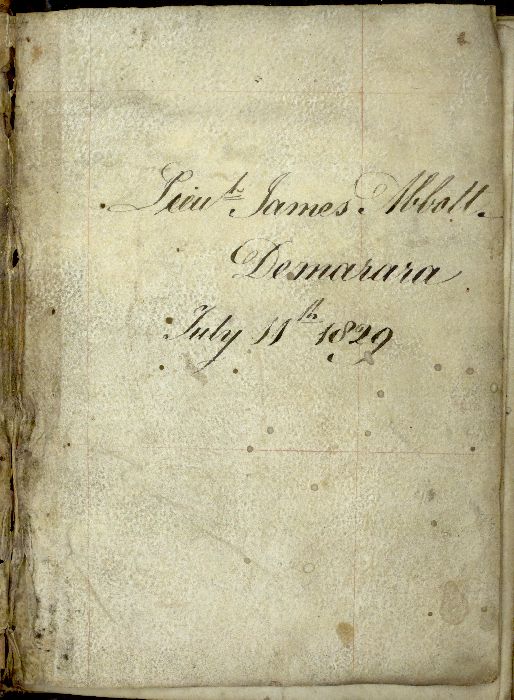 Lieut. James Abbott.
Demarara
July 11th 1829